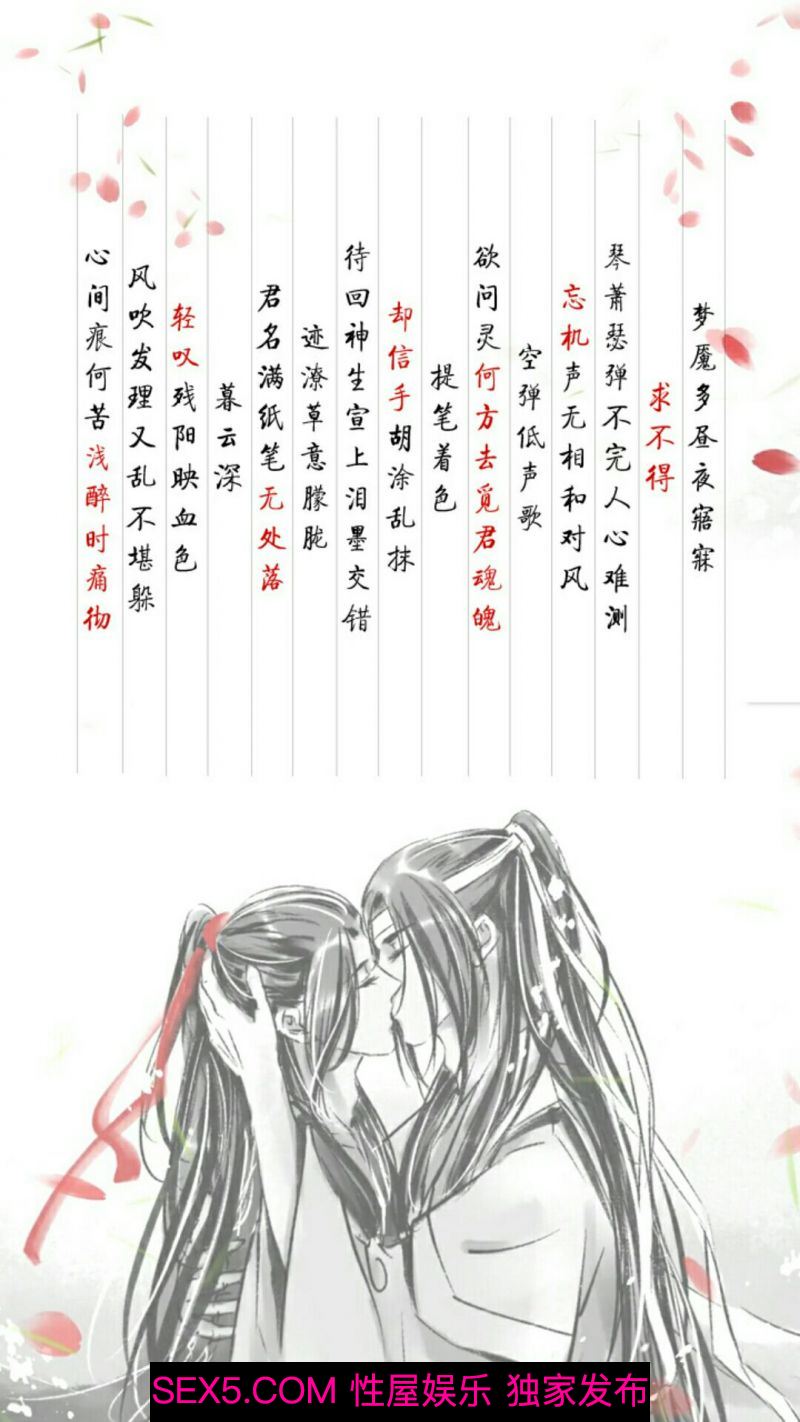 梦魇多昼夜寤寐
求不得
琴萧瑟弹不完人心难测
忘机声无相和对风
空弹低声歌
欲问灵何方去觅君魂魄
提笔着色
却信手胡涂乱抹
待回神生宣上泪墨交错
迹潦草意朦胧
君名满纸笔无处落
暮云深
轻叹残阳映血色
风吹发理又乱不堪躲
心间痕何苦浅醉时痛彻
SEX5.COM 性屋娱乐 独家发布